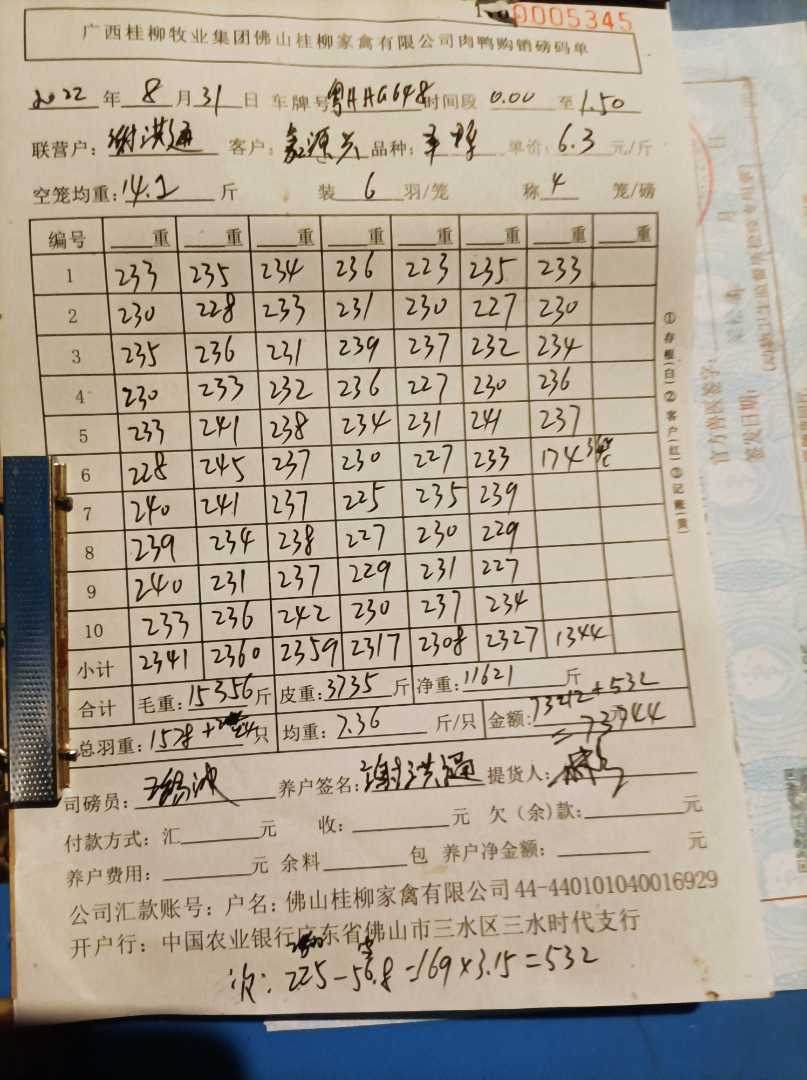 0005345
广西桂柳牧业集团佛山桂柳家禽有限公司肉鸭购销磅码单
2022年 8月31日 车牌号粤HHG648时间段 0.00 至1.50
联营户：谢洪通 客户：鑫源兴 品种： 单价：6.3元/斤
空笼均重：14.2 斤 装 6 羽/笼 称 4 笼/磅
编号 重 重 重 重 重 重 重 重
1 233 235 234 236 223 235 233
2 230 228 233 231 230 227 230
3 235 236 231 239 237 232 234
4 230 233 232 236 227 230 236
5 233 241 238 234 231 241 237
6 228 245 237 230 227 233 174
7 240 241 237 225 235 239
8 239 234 238 227 230 229
9 240 231 237 229 231 227
10 233 236 242 230 237 234
小计 2341 2360 2359 2317 2308 2327 1344
合计 毛重：15356斤 皮重：3735斤 净重：11621斤
总羽重：1578+ 只 均重：7.36 斤/只 金额：73212+532
=73744
司磅员： 养户签名：谢洪通 提货人：
付款方式：汇 元 收： 元 欠（余）款： 元
养户费用： 元 余料 包 养户净金额： 元
公司汇款账号：户名：佛山桂柳家禽有限公司44-440101040016929
开户行：中国农业银行广东省佛山市三水区三水时代支行
次：225-56.8=169×3.15=532
①存根（白）②客户（红）③记账（黄）
官方兽医签字：
签发日期：
月
日